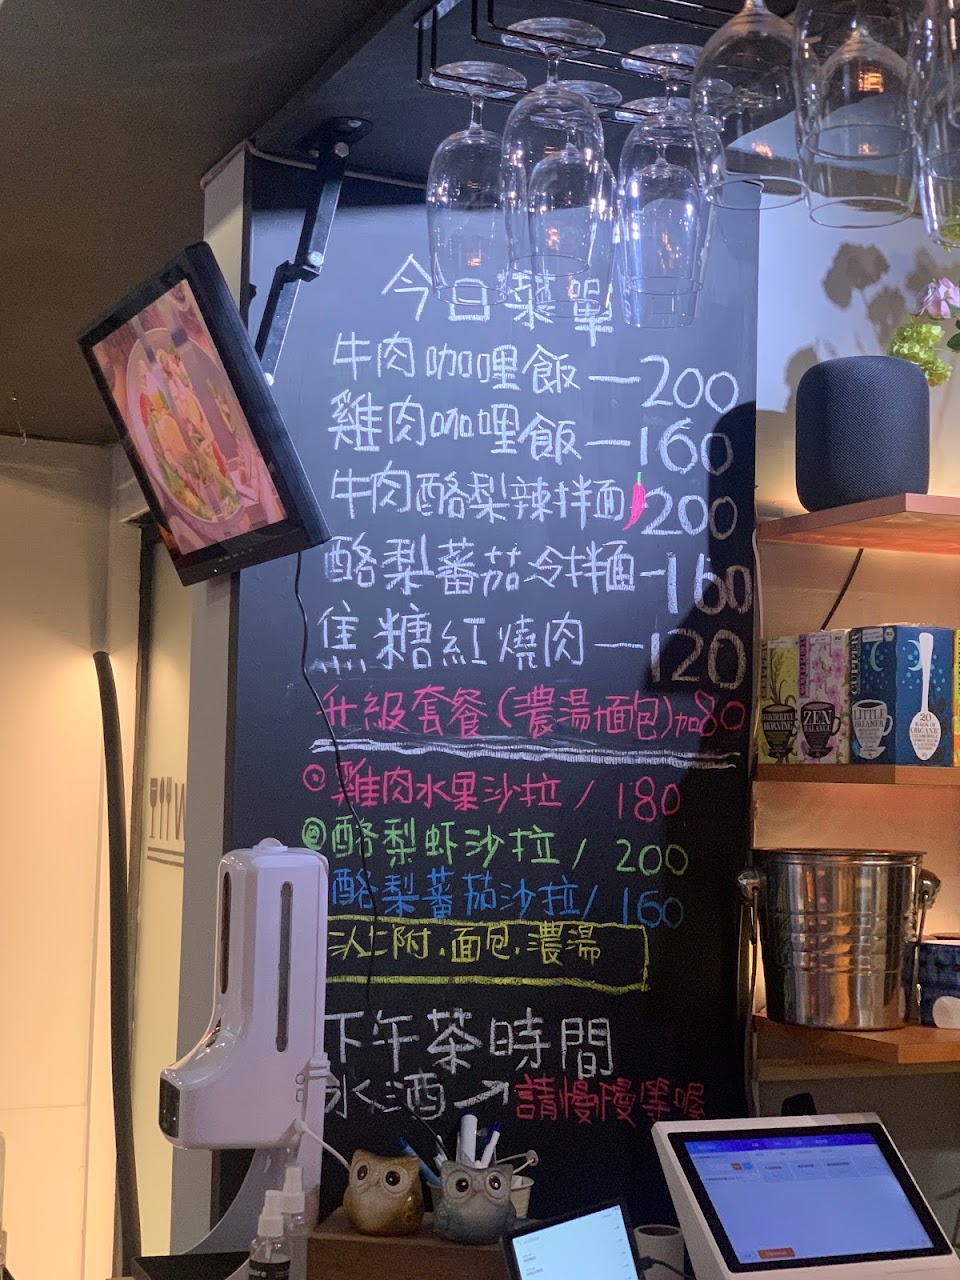 今日菜單
牛肉咖哩飯—200
雞肉咖哩飯—160
牛肉酪梨辣拌麵 200
酪梨蕃茄冷拌麵—160
焦糖紅燒肉—120
升級套餐(濃湯+麵包)加80
雞肉水果沙拉/180
酪梨虾沙拉/200
酪梨蕃茄沙拉/160
附.面包.濃湯
下午茶時間
水酒→請慢慢等喔
CLIPPER
WONDERFUL MORNING
CLIPPER
ZEN BALANCE
CLIPPER
LITTLE DREAMER
20
BAGS OF
ORGANIC